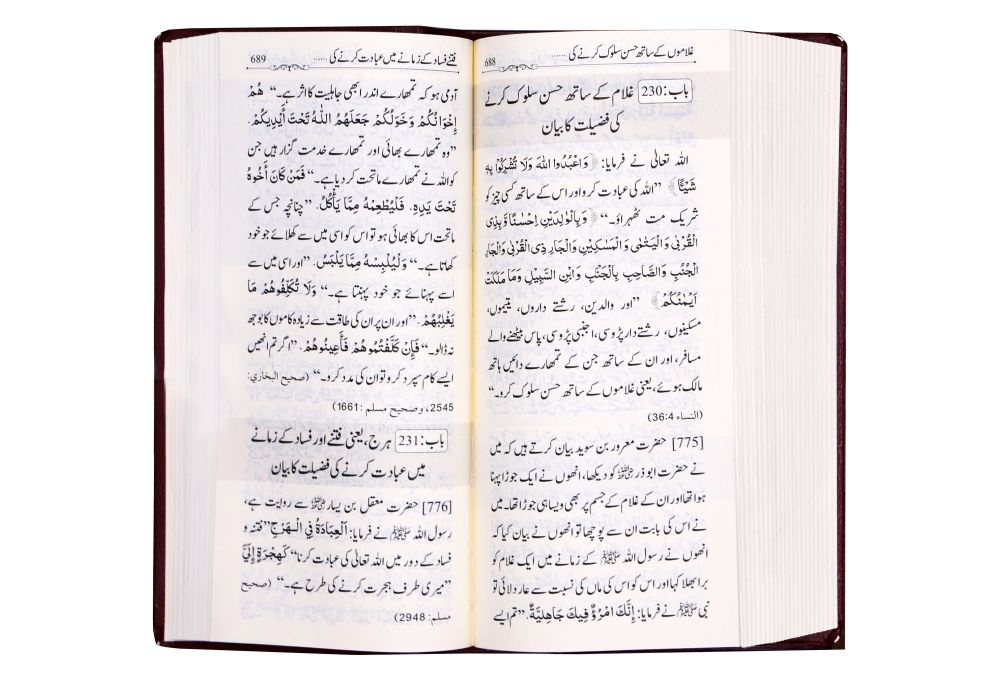 غلاموں کے ساتھ حسن سلوک کرنے کی ...... 688
باب: 230 غلام کے ساتھ حسن سلوک کرنے
کی فضیلت کا بیان
اللہ تعالیٰ نے فرمایا: ﴿وَاعْبُدُوا اللّٰهَ وَلَا تُشْرِكُوْا بِهٖ
شَيْـًٔا﴾ ”اللہ کی عبادت کرو اور اس کے ساتھ کسی چیز کو
شریک مت ٹھہراؤ۔“ ﴿وَّبِالْوَالِدَيْنِ اِحْسٰنًا وَّبِذِي
الْقُرْبٰى وَالْيَتٰمٰى وَالْمَسٰكِيْنِ وَالْجَارِ ذِي الْقُرْبٰى وَالْجَارِ
الْجُنُبِ وَالصَّاحِبِ بِالْجَنْۢبِ وَابْنِ السَّبِيْلِ وَمَا مَلَكَتْ
اَيْمٰنُكُمْ﴾ ”اور والدین، رشتے داروں، یتیموں،
مسکینوں، رشتے دار پڑوسی، اجنبی پڑوسی، پاس بیٹھنے والے
مسافر، اور ان کے ساتھ جن کے تمھارے دائیں ہاتھ
مالک ہوئے، یعنی غلاموں کے ساتھ حسن سلوک کرو۔“
(النساء 36:4)
[775] حضرت معرور بن سوید بیان کرتے ہیں کہ میں
نے حضرت ابوذر رضی اللہ عنہ کو دیکھا، انھوں نے ایک جوڑا پہنا
ہوا تھا اور ان کے غلام کے جسم پر بھی ویسا ہی جوڑا تھا۔ میں
نے اس کی بابت ان سے پوچھا تو انھوں نے بیان کیا کہ
انھوں نے رسول اللہ ﷺ کے زمانے میں ایک غلام کو
برا بھلا کہا اور اس کو اس کی ماں کی نسبت سے عار دلائی تو
نبی ﷺ نے فرمایا: إِنَّكَ امْرُؤٌ فِيكَ جَاهِلِيَّةٌ. ”تم ایسے
فتنے فساد کے زمانے میں عبادت کرنے کی ...... 689
آدمی ہو کہ تمھارے اندر ابھی جاہلیت کا اثر ہے۔“ هُمْ
إِخْوَانُكُمْ وَخَوَلُكُمْ جَعَلَهُمُ اللّٰهُ تَحْتَ أَيْدِيكُمْ.
”وہ تمھارے بھائی اور تمھارے خدمت گزار ہیں جن
کو اللہ نے تمھارے ماتحت کر دیا ہے۔“ فَمَنْ كَانَ أَخُوهُ
تَحْتَ يَدِهِ. فَلْيُطْعِمْهُ مِمَّا يَأْكُلُ. ”چنانچہ جس کے
ماتحت اس کا بھائی ہو تو اس کو اسی میں سے کھلائے جو خود
کھاتا ہے۔“ وَلْيُلْبِسْهُ مِمَّا يَلْبَسُ. ”اور اسی میں سے
اسے پہنائے جو خود پہنتا ہے۔“ وَلَا تُكَلِّفُوهُمْ مَا
يَغْلِبُهُمْ. ”اور ان پر ان کی طاقت سے زیادہ کاموں کا بوجھ
نہ ڈالو۔“ فَإِنْ كَلَّفْتُمُوهُمْ فَأَعِينُوهُمْ. ”اگر تم انھیں
ایسے کام سپرد کرو تو ان کی مدد کرو۔“ (صحيح البخاري:
2545، وصحيح مسلم: 1661)
باب: 231 ہرج، یعنی فتنے اور فساد کے زمانے
میں عبادت کرنے کی فضیلت کا بیان
[776] حضرت معقل بن یسار رضی اللہ عنہ سے روایت ہے،
رسول اللہ ﷺ نے فرمایا: اَلْعِبَادَةُ فِي الْهَرْجِ ”فتنہ و
فساد کے دور میں اللہ تعالیٰ کی عبادت کرنا“ كَهِجْرَةٍ إِلَيَّ
”میری طرف ہجرت کرنے کی طرح ہے۔“ (صحيح
مسلم: 2948)